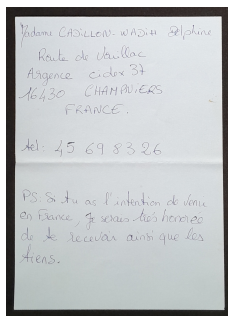 Madame CADILLON-WADIH Delphine
Route de Vouillac
Argence cidex 37
16430 CHAMPNIERS
FRANCE.
tel: 45 69 83 26
PS: Si tu as l'intention de venir
en France, je serais très honorée
de te recevoir ainsi que les
tiens.